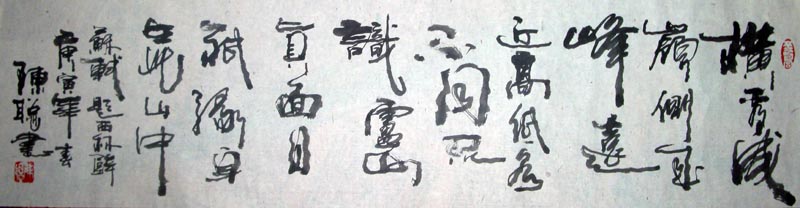 橫看成
嶺側成
峰遠
近高低各
不同不
識廬山
真面目
祇緣身
此山中
蘇軾題西林壁
庚寅年春
陳聰書